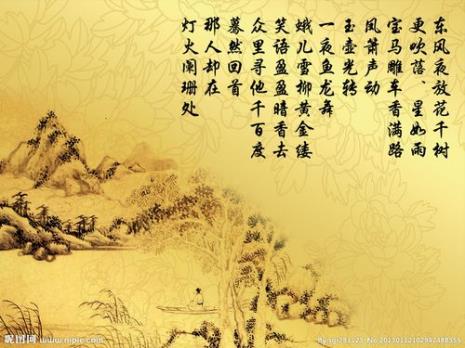 东风夜放花千树
更吹落、星如雨
宝马雕车香满路
凤箫声动
玉壶光转
一夜鱼龙舞
蛾儿雪柳黄金缕
笑语盈盈暗香去
众里寻他千百度
蓦然回首
那人却在
灯火阑珊处
昵图网 www.nipic.com